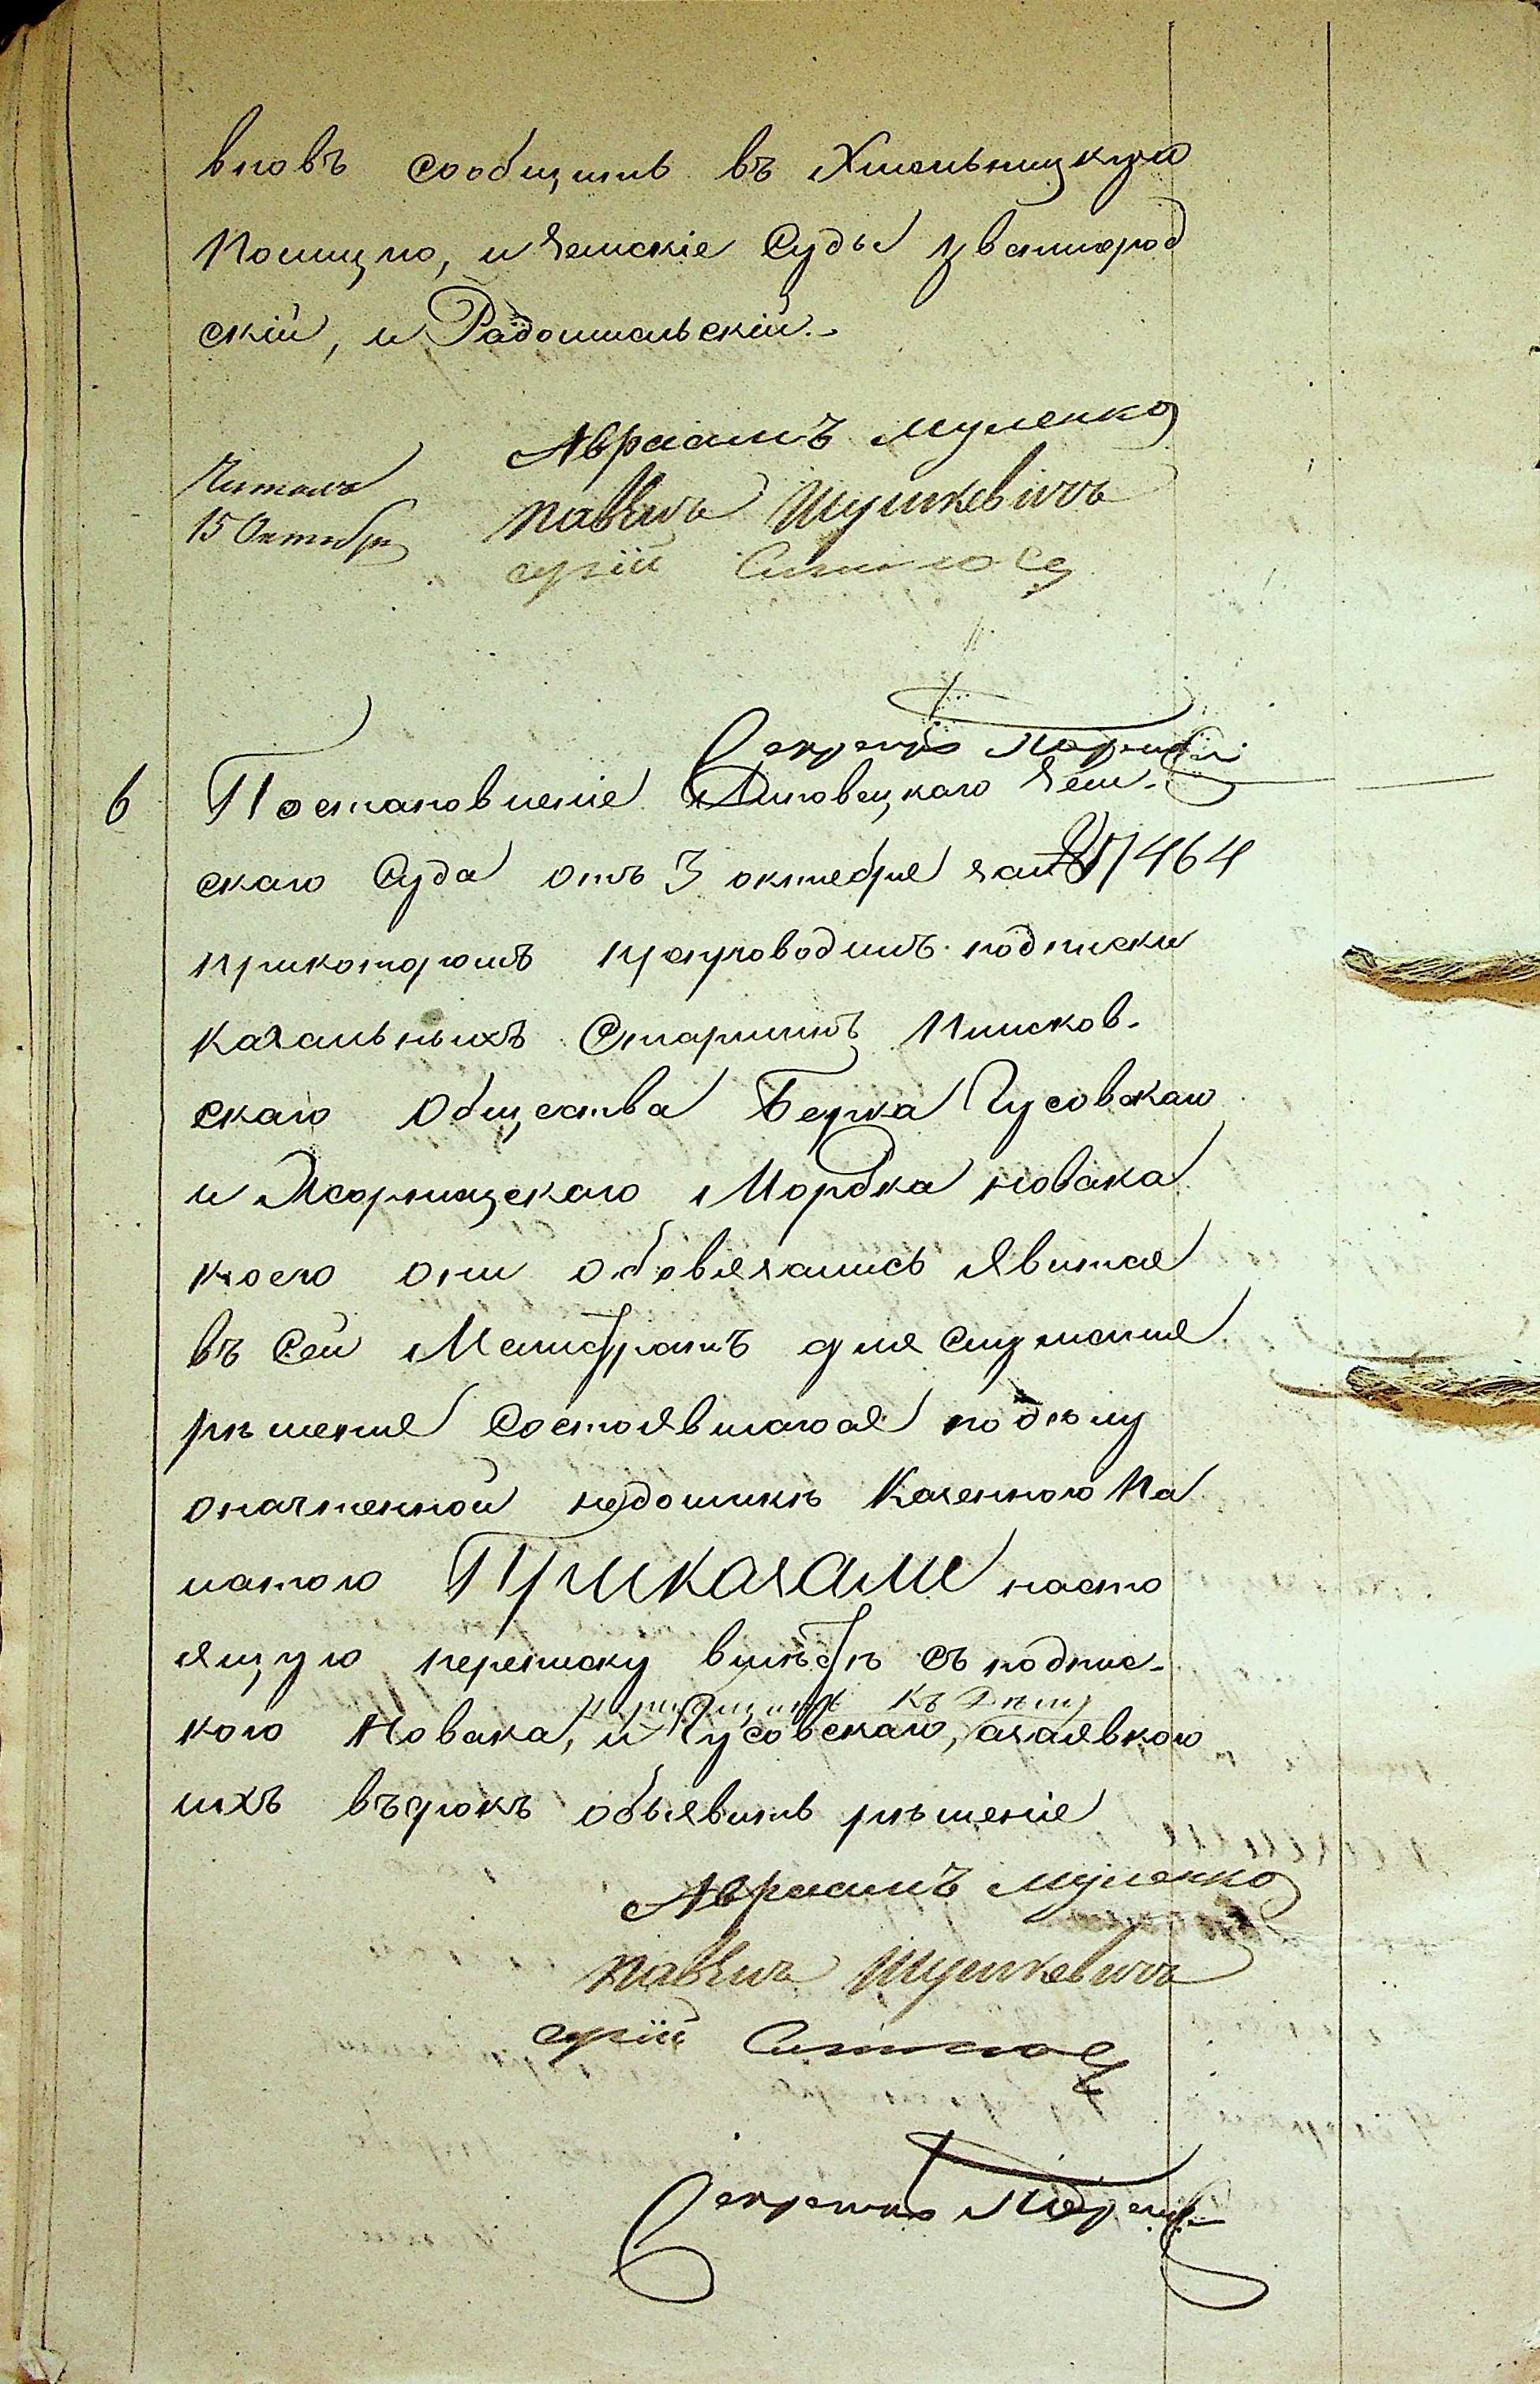 вновъ сообщить въ Хмельницкую
Полицію, и Земскіе Суды Звенигород
скій, и Радомысльскій.-
Авраамъ Муленко
Читалъ
Павелъ Шушкевичъ
15 Октября
Секретарь
6
Постановленіе Липовецкаго Зем-
скаго Суда отъ 3 октября за № 17464
прикоторомъ препроводилъ подписки
Кагальныхъ Старшинъ Плисков-
скаго Общества Берка Гусовскаго
и Жорнищскаго Мордка Новака
коею они обовязались явится
въ Сей Магистратъ для слушанія
рѣшенія состоявшагося подѣлу
означенной недоимкѣ Казенною Па
латою Приказали насто
ящую переписку вмѣстѣ съ подпис-
кою Новака, и Гусовскаго, азаявкою
пріобщить къ дѣлу
ихъ въсрокъ объявить рѣшеніе
Авраамъ Муленко
Павелъ Шушкевичъ
Секретарь